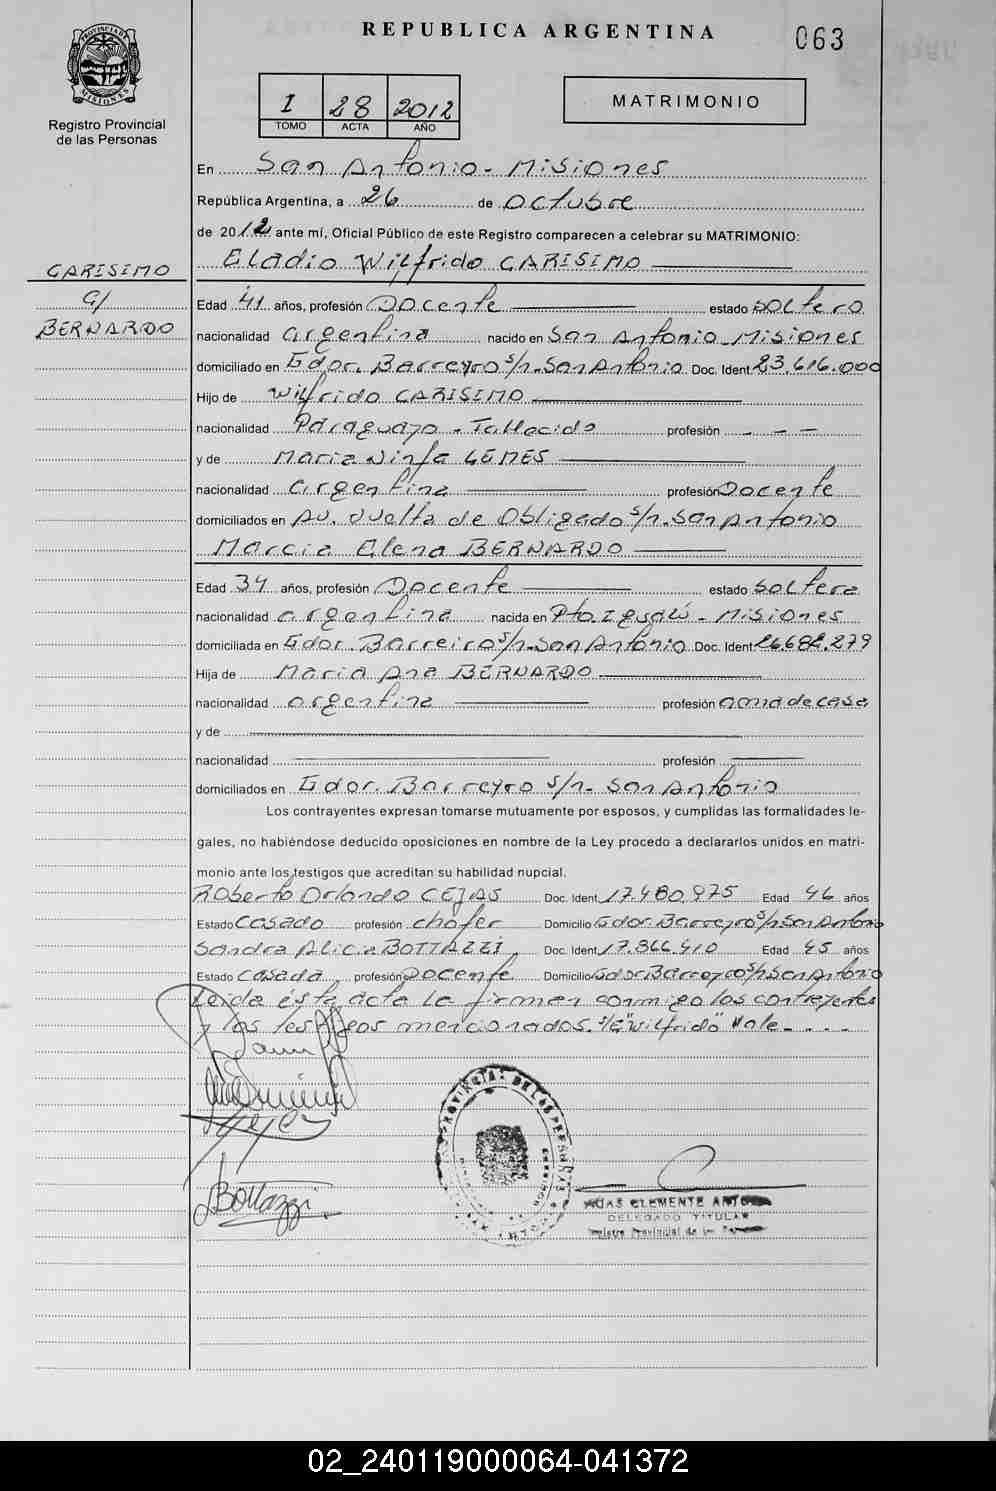 REPUBLICA ARGENTINA
063
PROVINCIA DE MISIONES
Registro Provincial
de las Personas
I 28 2012
TOMO ACTA AÑO
MATRIMONIO
En San Antonio - Misiones
República Argentina, a 26 de octubre
de 2012 ante mí, Oficial Público de este Registro comparecen a celebrar su MATRIMONIO:
Eladio Wilfrido CARISIMO
CARISIMO
C/
BERNARDO
Edad 41 años, profesión Docente estado soltero
nacionalidad argentina nacido en San Antonio - Misiones
domiciliado en Gdor. Barreyro s/n. San Antonio Doc. Ident 23.616.000
Hijo de Wilfrido CARISIMO
nacionalidad Paraguayo - Fallecido profesión - - -
y de Maria Ninfa LEMES
nacionalidad argentina profesión Docente
domiciliados en Av. Vuelta de Obligado s/n. San Antonio
Marcia Elena BERNARDO
Edad 34 años, profesión Docente estado soltera
nacionalidad argentina nacida en Pto. Iguazú - Misiones
domiciliada en Gdor. Barreiro s/n. San Antonio Doc. Ident 26.682.279
Hija de Maria Ana BERNARDO
nacionalidad argentina profesión ama de casa
y de
nacionalidad profesión
domiciliados en Gdor. Barreyro s/n. San Antonio
Los contrayentes expresan tomarse mutuamente por esposos, y cumplidas las formalidades le-
gales, no habiéndose deducido oposiciones en nombre de la Ley procedo a declararlos unidos en matri-
monio ante los testigos que acreditan su habilidad nupcial.
Roberto Orlando CEJAS Doc. Ident 17.480.975 Edad 46 años
Estado Casado profesión chofer Domicilio Gdor. Barreyro s/n San Antonio
Sandra Alicia BOTTAZZI Doc. Ident 17.866.410 Edad 45 años
Estado Casada profesión Docente Domicilio Gdor Barreyro s/n San Antonio
Leida ésta acta la firman conmigo los contrayentes
y los testigos mencionados. "Wilfrido" Vale - - - -
Bottazzi
CLEMENTE
DELEGADO TITULAR
Registro Provincial de las Personas
02_240119000064-041372